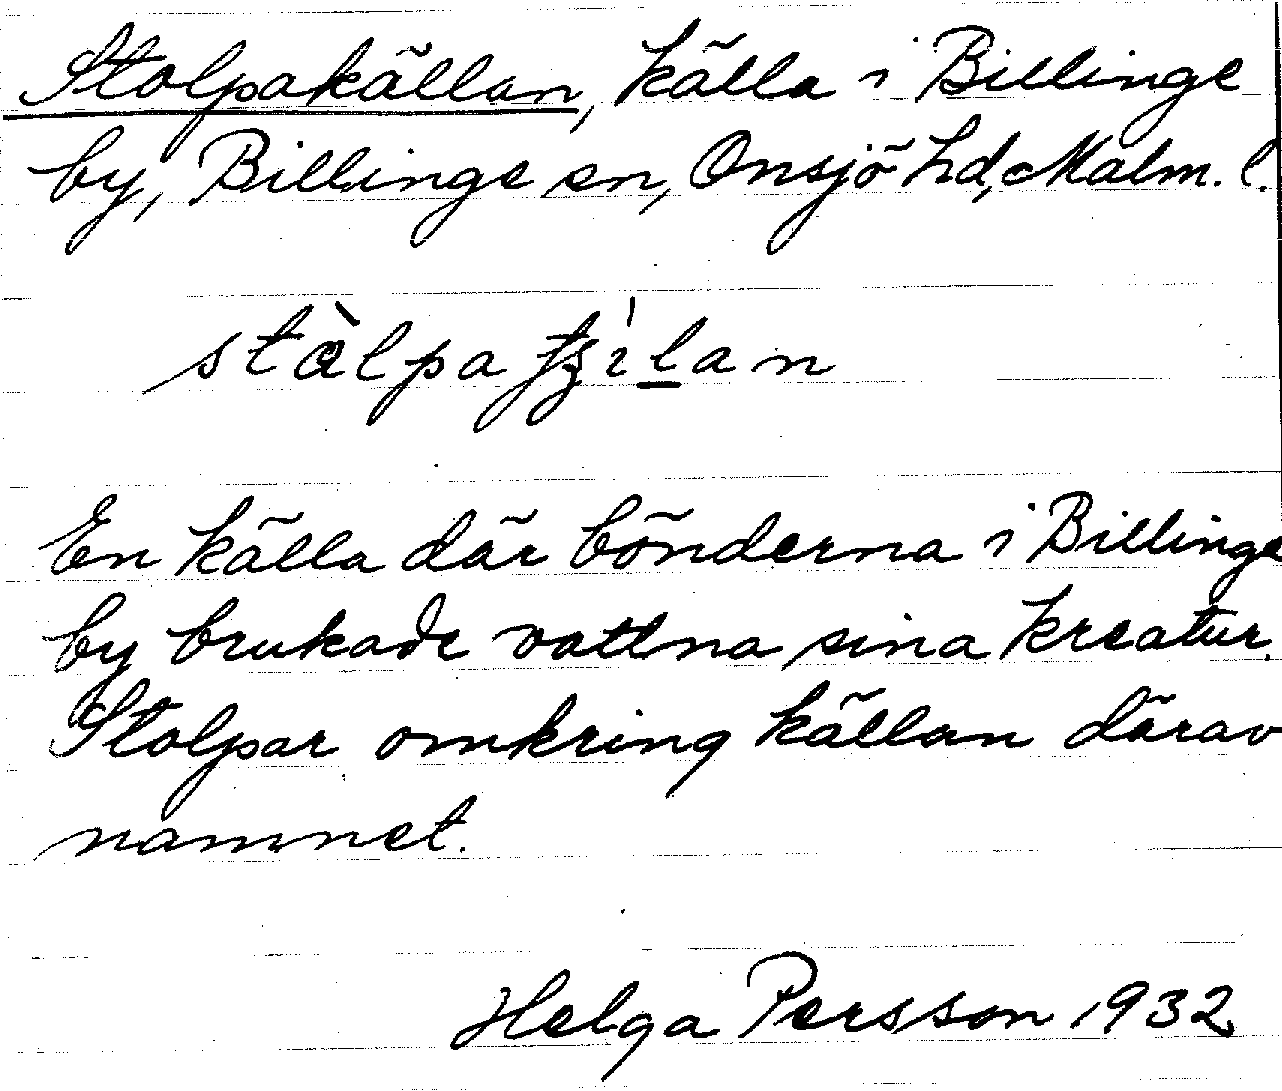 Stolpakällan, källa i Billinge
by, Billinge sn, Onsjö hd, Malm. l.
En källa där bönderna i Billinge
by brukade vattna sina kreatur.
Stolpar omkring källan därav
namnet.
Helga Persson 1932